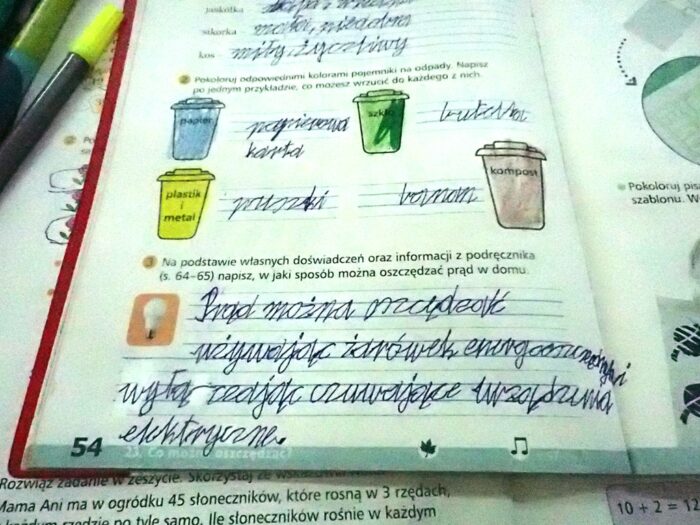 jaskółka
sikorka mała, niezdra
kos miły, życzliwy
2 Pokoloruj odpowiednimi kolorami pojemniki na odpady. Napisz
po jednym przykładzie, co możesz wrzucić do każdego z nich.
papier papierowa szkło butelka
karta
kompost
plastik
i
metal puszki banan
3 Na podstawie własnych doświadczeń oraz informacji z podręcznika
(s. 64–65) napisz, w jaki sposób można oszczędzać prąd w domu.
Prąd można oszczędzać
używając żarówek energooszczędnych
wyłączając czuwające urządzenia
elektryczne.
54 23. Co możemy oszczędzać?
Pokoloruj
szablonu. W
Rozwiąż zadanie w zeszycie. Skorzystaj ze
Mama Ani ma w ogródku 45 słoneczników, które rosną w 3 rzędach,
w każdym rzędzie po tyle samo. Ile słoneczników rośnie w każdym
10 + 2 = 12